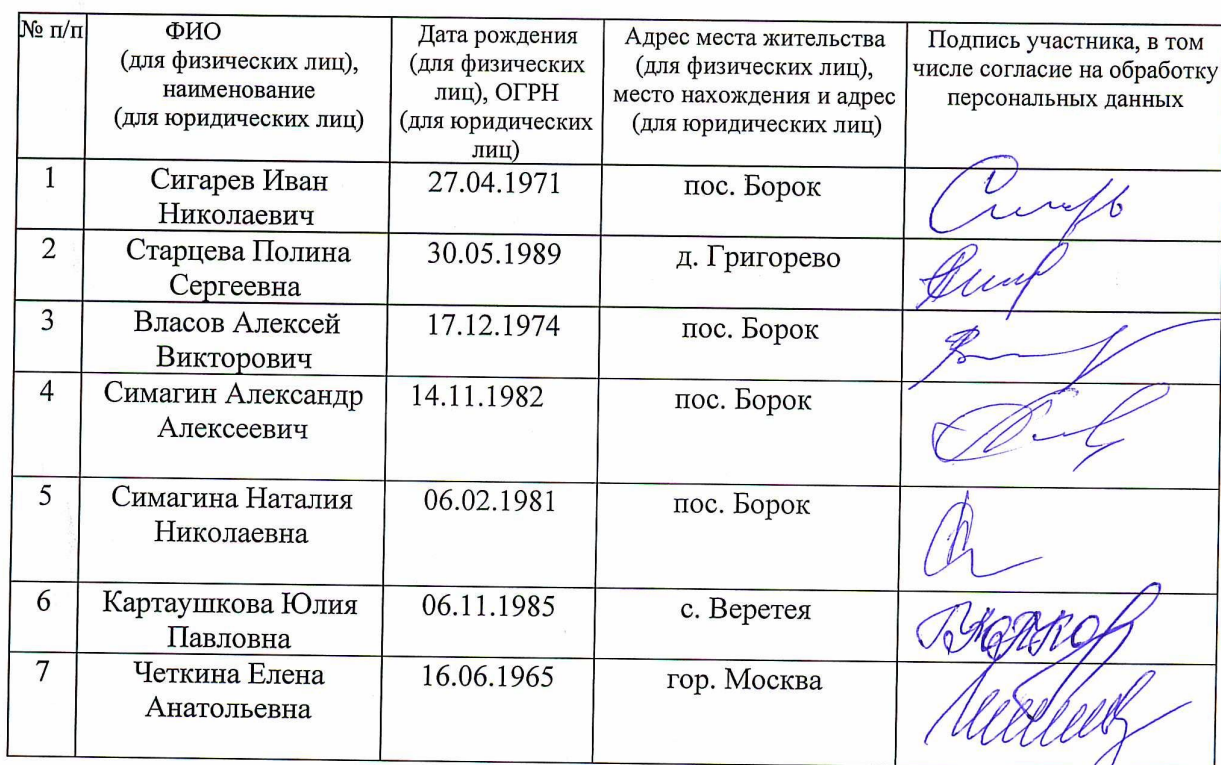 № п/п
ФИО
(для физических лиц),
наименование
(для юридических лиц)
Дата рождения
(для физических
лиц), ОГРН
(для юридических
лиц)
Адрес места жительства
(для физических лиц),
место нахождения и адрес
(для юридических лиц)
Подпись участника, в том
числе согласие на обработку
персональных данных
1
Сигарев Иван
Николаевич
27.04.1971
пос. Борок
2
Старцева Полина
Сергеевна
30.05.1989
д. Григорево
3
Власов Алексей
Викторович
17.12.1974
пос. Борок
4
Симагин Александр
Алексеевич
14.11.1982
пос. Борок
5
Симагина Наталия
Николаевна
06.02.1981
пос. Борок
6
Картаушкова Юлия
Павловна
06.11.1985
с. Веретея
7
Четкина Елена
Анатольевна
16.06.1965
гор. Москва